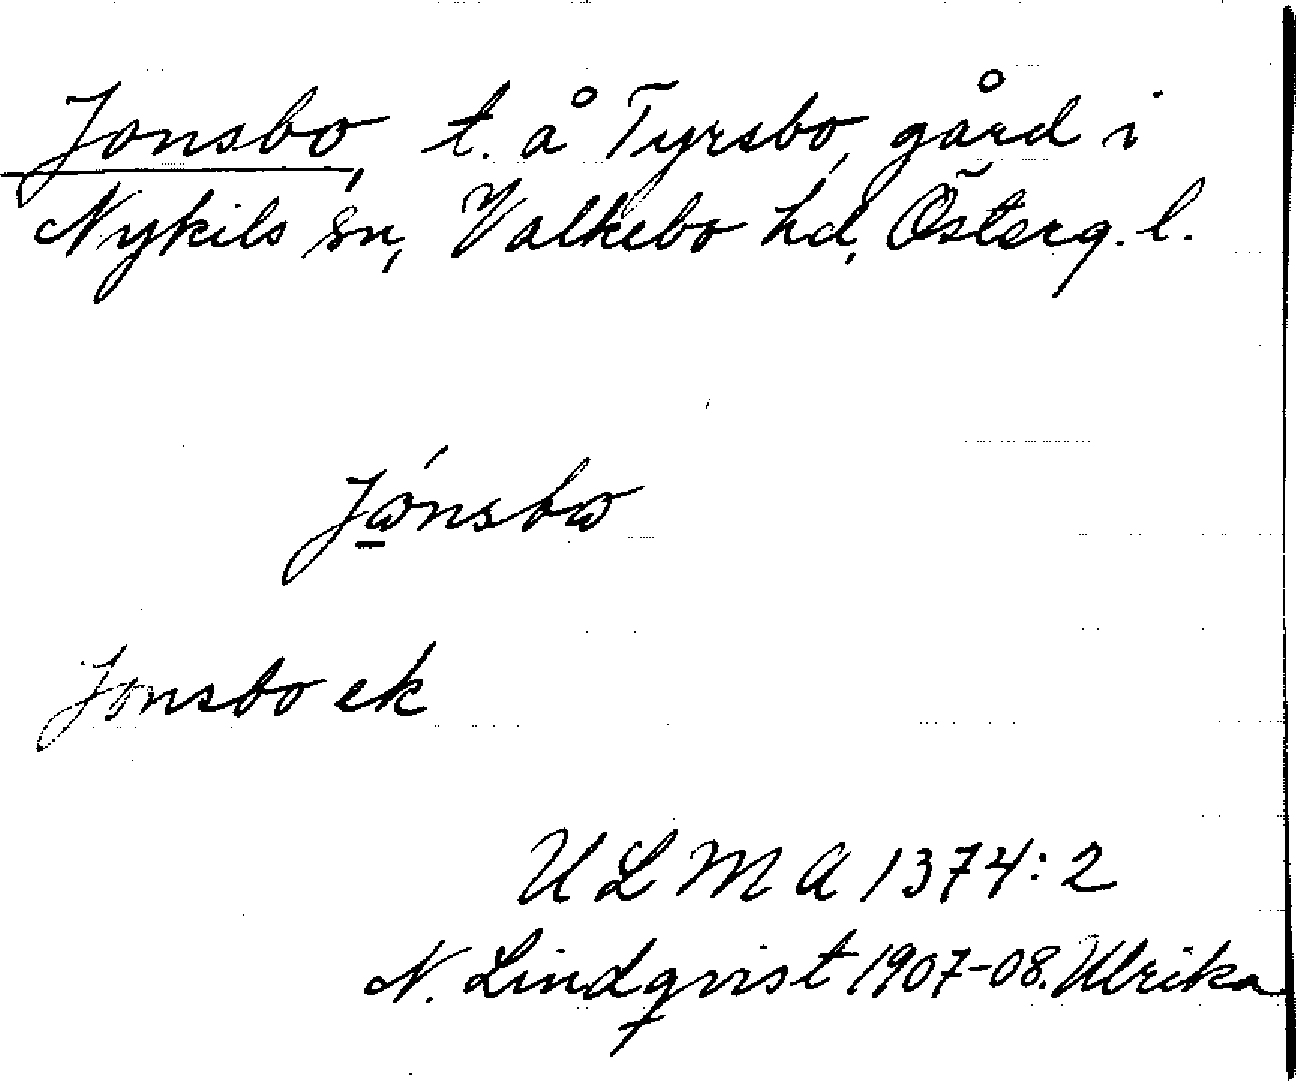 Jonsbo, t. å Tyrsbo, gård i
Nykils sn, Valkebo hd, Österg. l.
Jónsbo
Jonsbo ek
ULMA 1374:2
N. Lindqvist 1907-08. Ulrika